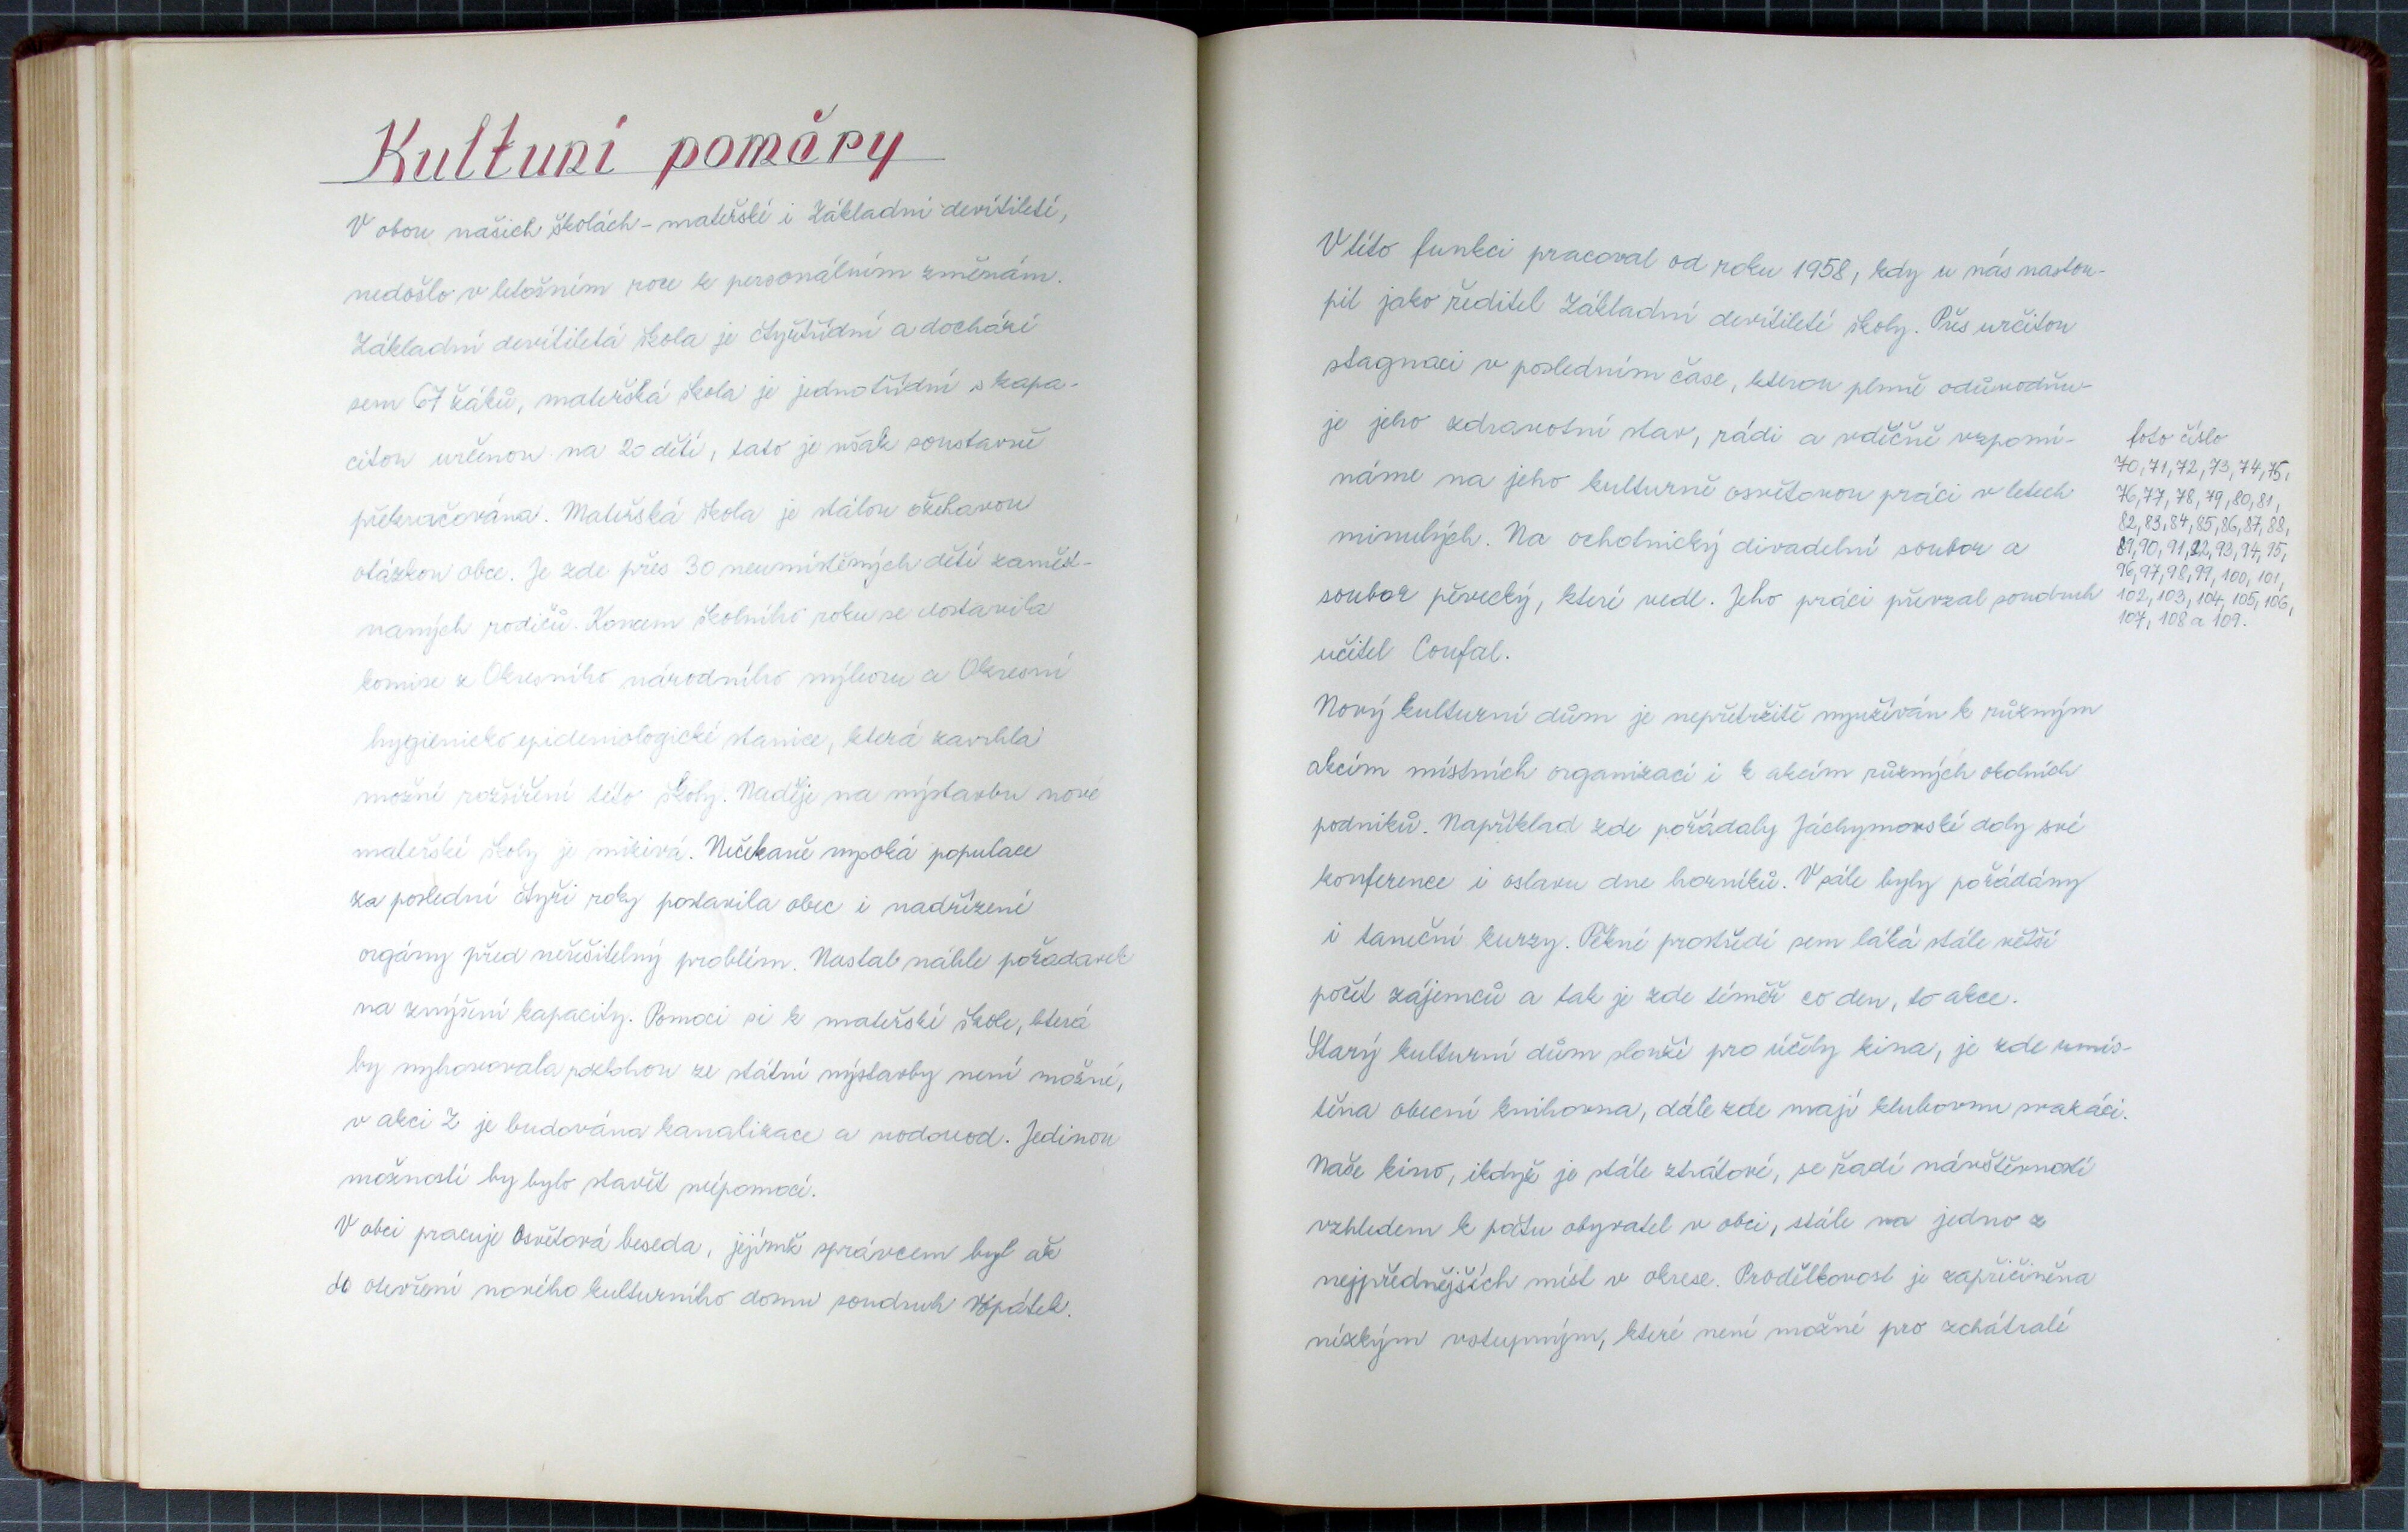 Kulturní poměry
V obou našich školách - mateřské i Základní devítileté,
nedošlo v letošním roce k personálním změnám.
Základní devítiletá škola je čtyřtřídní a dochází
sem 67 žáků, mateřská škola je jednotřídní s kapa-
citou určenou na 20 dětí, tato je však soustavně
překračována. Mateřská škola je stálou ožehavou
otázkou obce. Je zde přes 30 neumístěných dětí zaměst-
naných rodičů. Koncem školního roku se dostavila
komise z Okresního národního výboru a Okresní
hygienicko epidemiologické stanice, která zavrhla
možné rozšíření této školy. Naděje na výstavbu nové
mateřské školy je mizivá. Nečekaně vysoká populace
za poslední čtyři roky postavila obec i nadřízené
orgány před neřešitelný problém. Nastal náhle požadavek
na zvýšení kapacity. Pomoci si k mateřské škole, která
by vyhovovala polohou ze státní výstavby není možné,
v akci Z je budována kanalizace a vodovod. Jedinou
možností by bylo stavět svépomocí.
V obci pracuje Osvětová beseda, jejímž správcem byl až
do otevření nového kulturního domu soudruh Vopátek.
V této funkci pracoval od roku 1958, kdy u nás nastou-
pil jako ředitel Základní devítileté školy. Přes určitou
stagnaci v posledním čase, kterou plně odůvodňu-
je jeho zdravotní stav, rádi a vděčně vzpomí-
náme na jeho kulturně osvětovou práci v letech
minulých. Na ochotnický divadelní soubor a
soubor pěvecký, které vedl. Jeho práci převzal soudruh
učitel Coufal.
Nový kulturní dům je nepřetržitě využíván k různým
akcím místních organizací i k akcím různých okolních
podniků. Například zde pořádaly Jáchymovské doly své
konference i oslavu dne horníků. V sále byly pořádány
i taneční kurzy. Pěkné prostředí sem láká stále větší
počet zájemců a tak je zde téměř co den, to akce.
Starý kulturní dům slouží pro účely kina, je zde umís-
těna obecní knihovna, dále zde mají klubovnu svazáci.
Naše kino, ikdyž je stále ztrátové, se řadí návštěvností
vzhledem k počtu obyvatel v obci, stále na jedno z
nejpřednějších míst v okrese. Prodělkovost je zapříčiněna
nízkým vstupným, které není možné pro zchátralé
foto číslo
70, 71, 72, 73, 74, 75,
76, 77, 78, 79, 80, 81,
82, 83, 84, 85, 86, 87, 88,
89, 90, 91, 92, 93, 94, 95,
96, 97, 98, 99, 100, 101,
102, 103, 104, 105, 106,
107, 108 a 109.